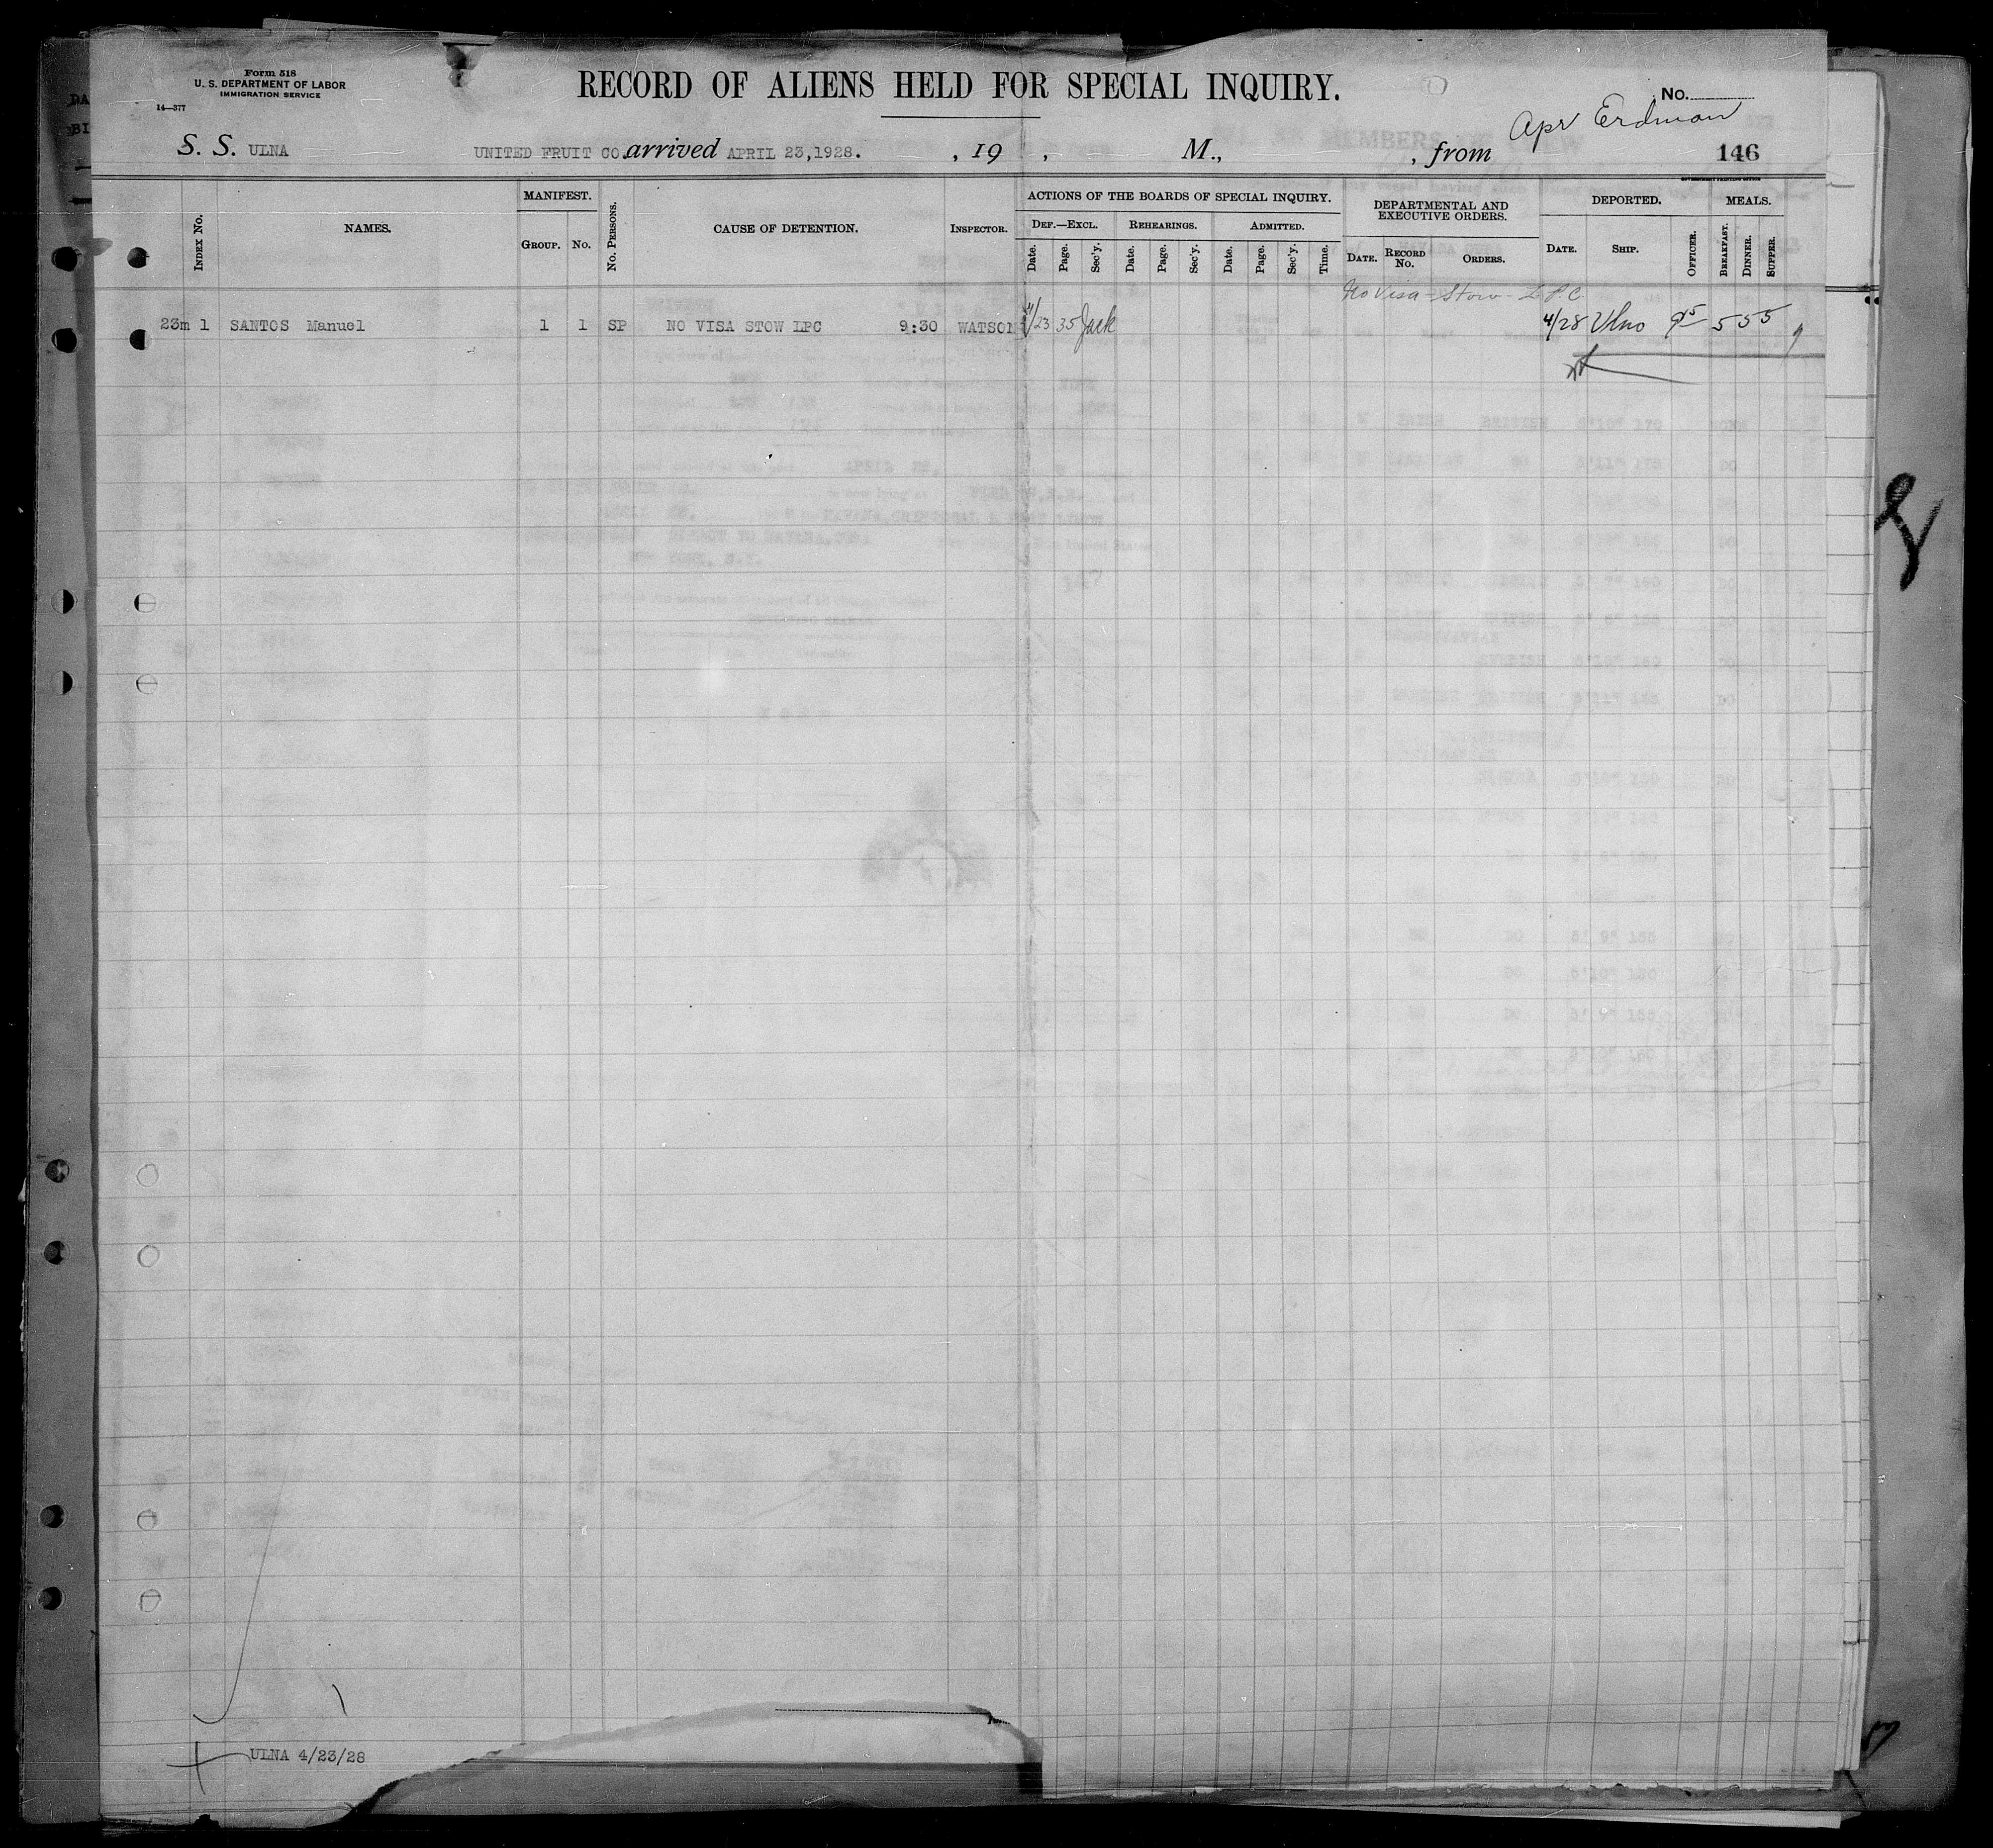 Form 518
U. S. DEPARTMENT OF LABOR
IMMIGRATION SERVICE
14—377
RECORD OF ALIENS HELD FOR SPECIAL INQUIRY.
No.
Apr Erdman
S. S. ULNA UNITED FRUIT CO. arrived APRIL 23,1928. , 19 , M., , from
146
GOVERNMENT PRINTING OFFICE
Index No. NAMES. MANIFEST. No. Persons. CAUSE OF DETENTION. INSPECTOR. ACTIONS OF THE BOARDS OF SPECIAL INQUIRY. DEPARTMENTAL AND EXECUTIVE ORDERS. DEPORTED. MEALS.
GROUP. No. DEF.—EXCL. REHEARINGS. ADMITTED.
Date. Page. Sec'y. Date. Page. Sec'y. Date. Page. Sec'y. Time. DATE. RECORD No. ORDERS. DATE. SHIP. OFFICER. BREAKFAST. DINNER. SUPPER.
No Visa - Stow - L.P.C.
23m 1 SANTOS Manuel 1 1 SP NO VISA STOW LPC 9:30 WATSON 4/23 35 Jack 4/28 Ulna 5 5 5
ULNA 4/23/28